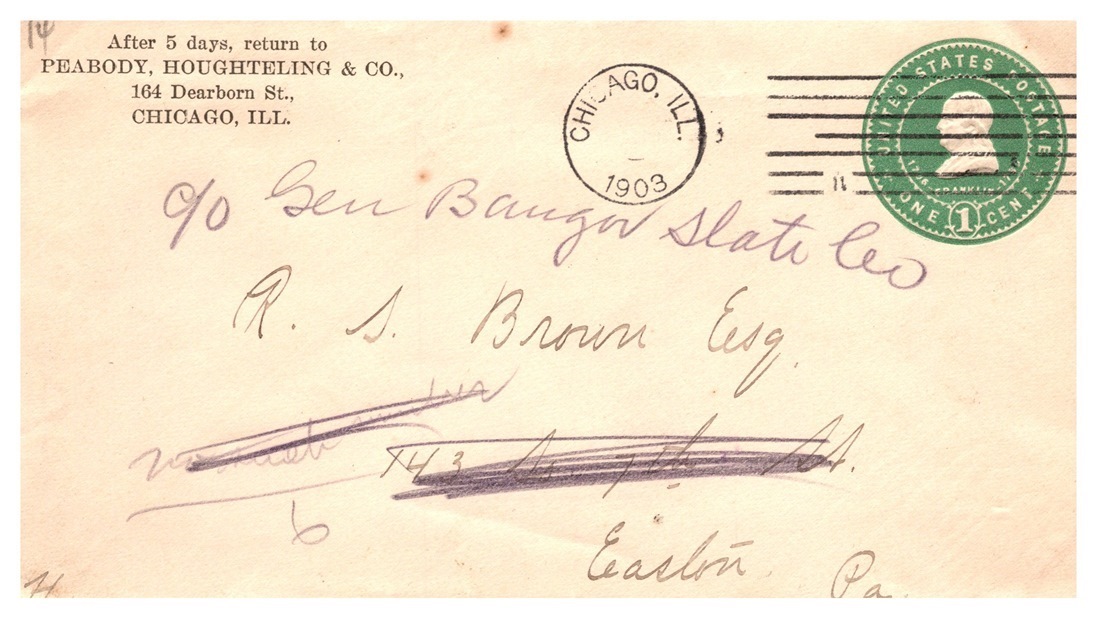 14
After 5 days, return to
PEABODY, HOUGHTELING & CO.,
164 Dearborn St.,
CHICAGO, ILL.
CHICAGO, ILL.
1903
UNITED STATES POSTAGE
1706 FRANKLIN 1790
ONE 1 CENT
c/o Gen Bangor Slate Co
R. S. Brown Esq.
143 St.
6
Easton Pa.
H